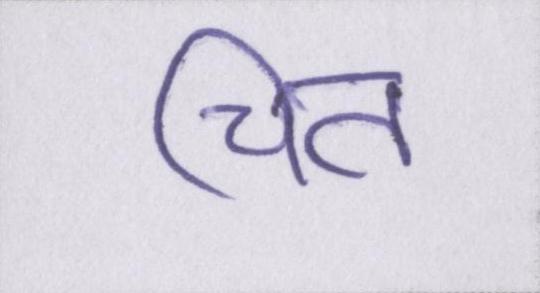 चित